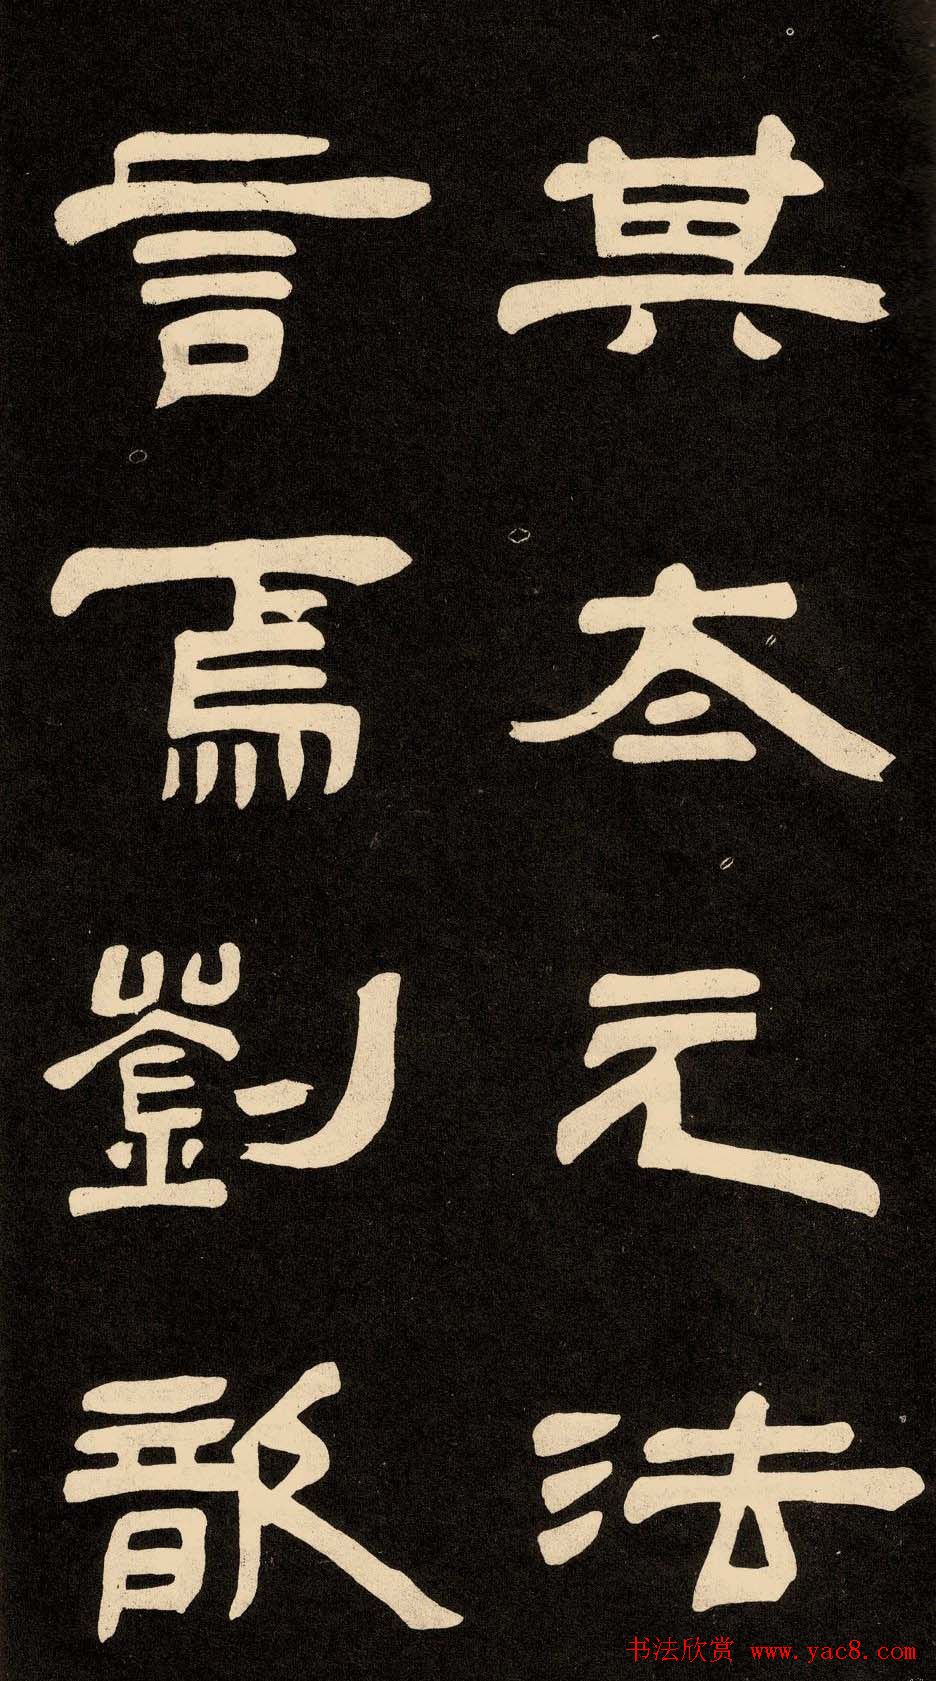 其夳元法
言焉劉歆
书法欣赏 www.yac8.com